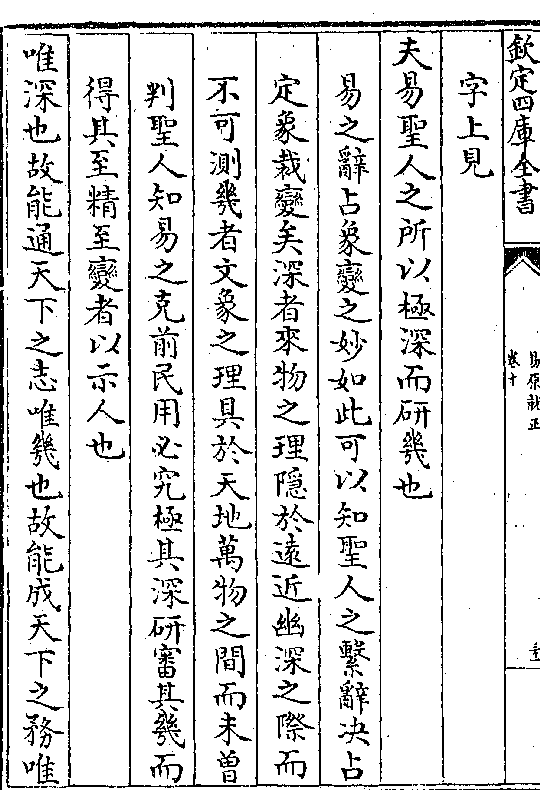 欽定四庫全書
易原就正
卷十
字上見
夫易聖人之所以極深而研幾也
易之辭占象變之妙如此可以知聖人之繫辭决占
定象裁變矣深者來物之理隱於遠近幽深之際而
不可測幾者文象之理具於天地萬物之間而未曾
判聖人知易之克前民用必究極其深研審其幾而
得其至精至變者以示人也
唯深也故能通天下之志唯幾也故能成天下之務唯